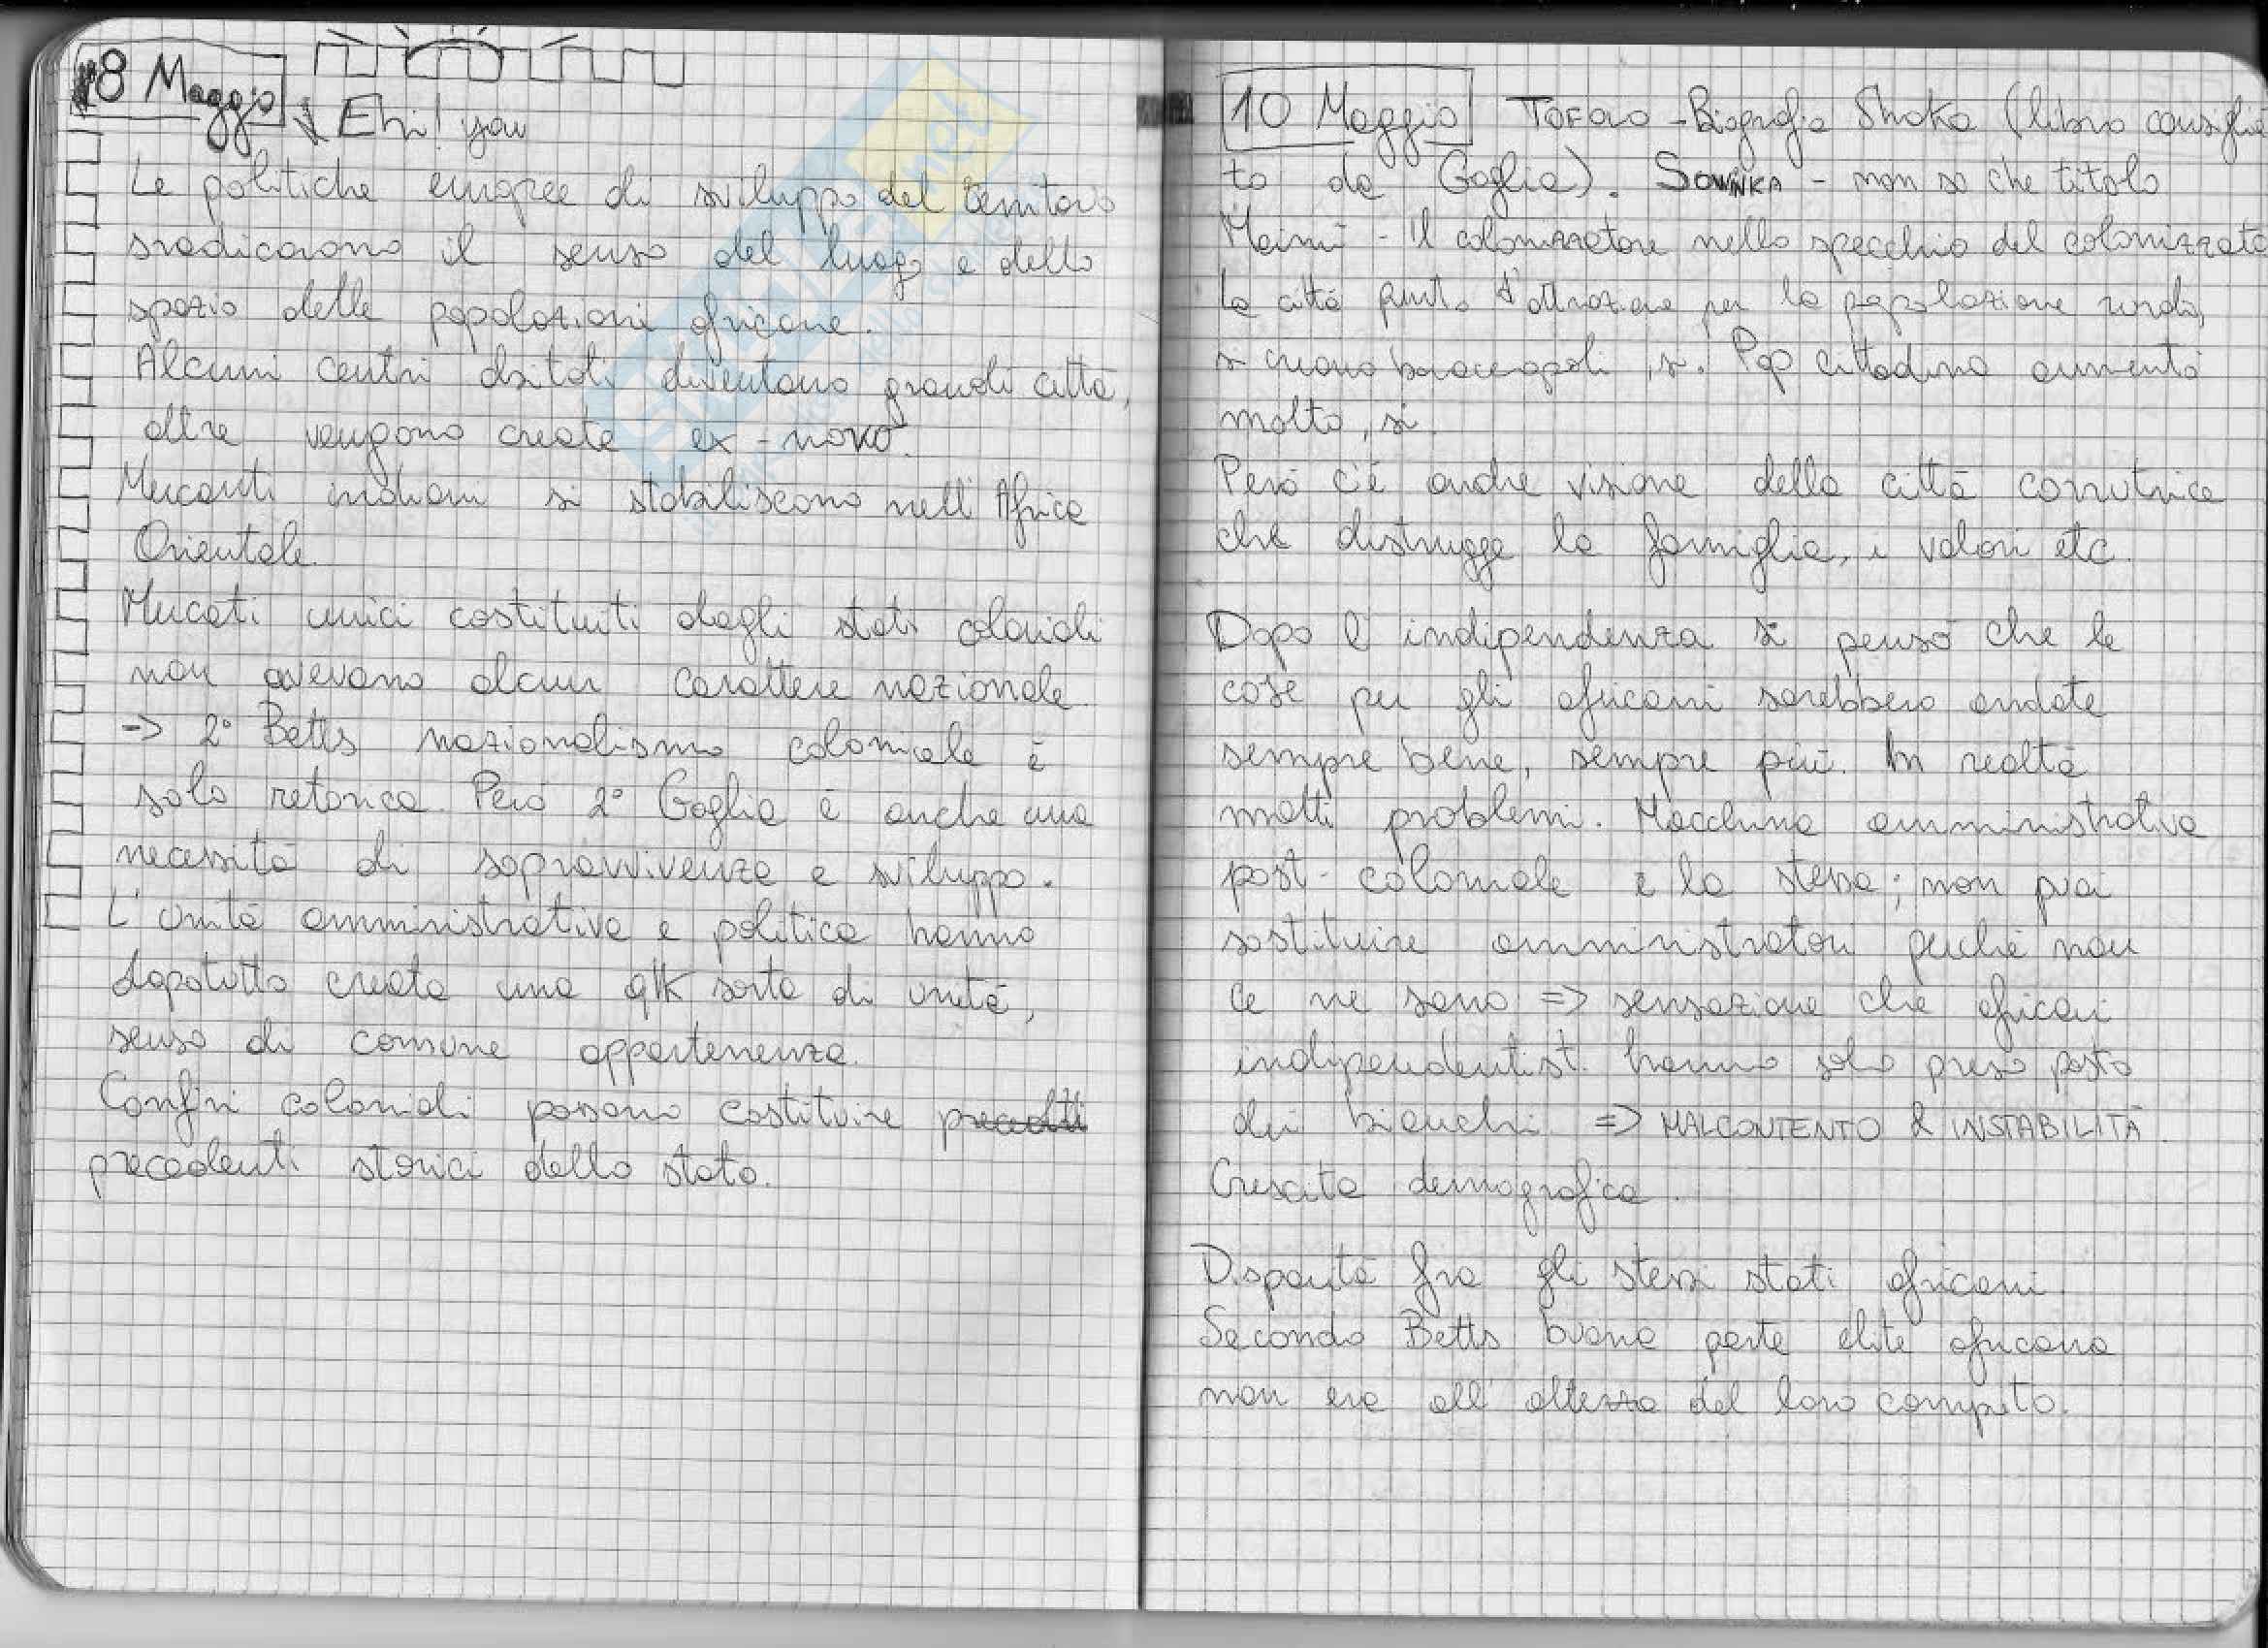 8 Maggio
Ehi! you
Le politiche europee di sviluppo del territorio
sradicarono il senso del luogo e dello
spazio delle popolazioni africane.
Alcuni centri abitati diventano grandi città,
altre vengono create ex-novo.
Mercanti indiani si stabiliscono nell'Africa
Orientale.
Mercati unici costituiti dagli stati coloniali
non avevano alcun carattere nazionale.
=> 2° Betts nazionalismo coloniale è
solo retorica. Però 2° Goglia è anche una
necessità di sopravvivenza e sviluppo.
L'unità amministrativa e politica hanno
dopotutto creato una qlk sorta di unità,
senso di comune appartenenza.
Confini coloniali possono costituire
precedenti storici dello stato.
10 Maggio - Biografia Shaka (libro consiglia
to da Goglia). - non so che titolo
- Il colonizzatore nello specchio del colonizzato
La città punto d'attrazione per la popolazione rurale,
si creano baraccopoli, si. Pop cittadina aumenta
molto, si.
Però c'è anche visione della città corrutrice
che distrugge la famiglia, i valori etc.
Dopo l'indipendenza si pensò che le
cose per gli africani sarebbero andate
sempre bene, sempre più. In realtà
molti problemi. Macchina amministrativa
post-coloniale è la stessa; non puoi
sostituire amministratori perché non
ce ne sono => sensazione che africani
indipendentisti hanno solo preso posto
dei bianchi => MALCONTENTO & INSTABILITÀ.
Crescita demografica.
Disparità fra gli stessi stati africani.
Secondo Betts buona parte elite africana
non era all'altezza del loro compito.